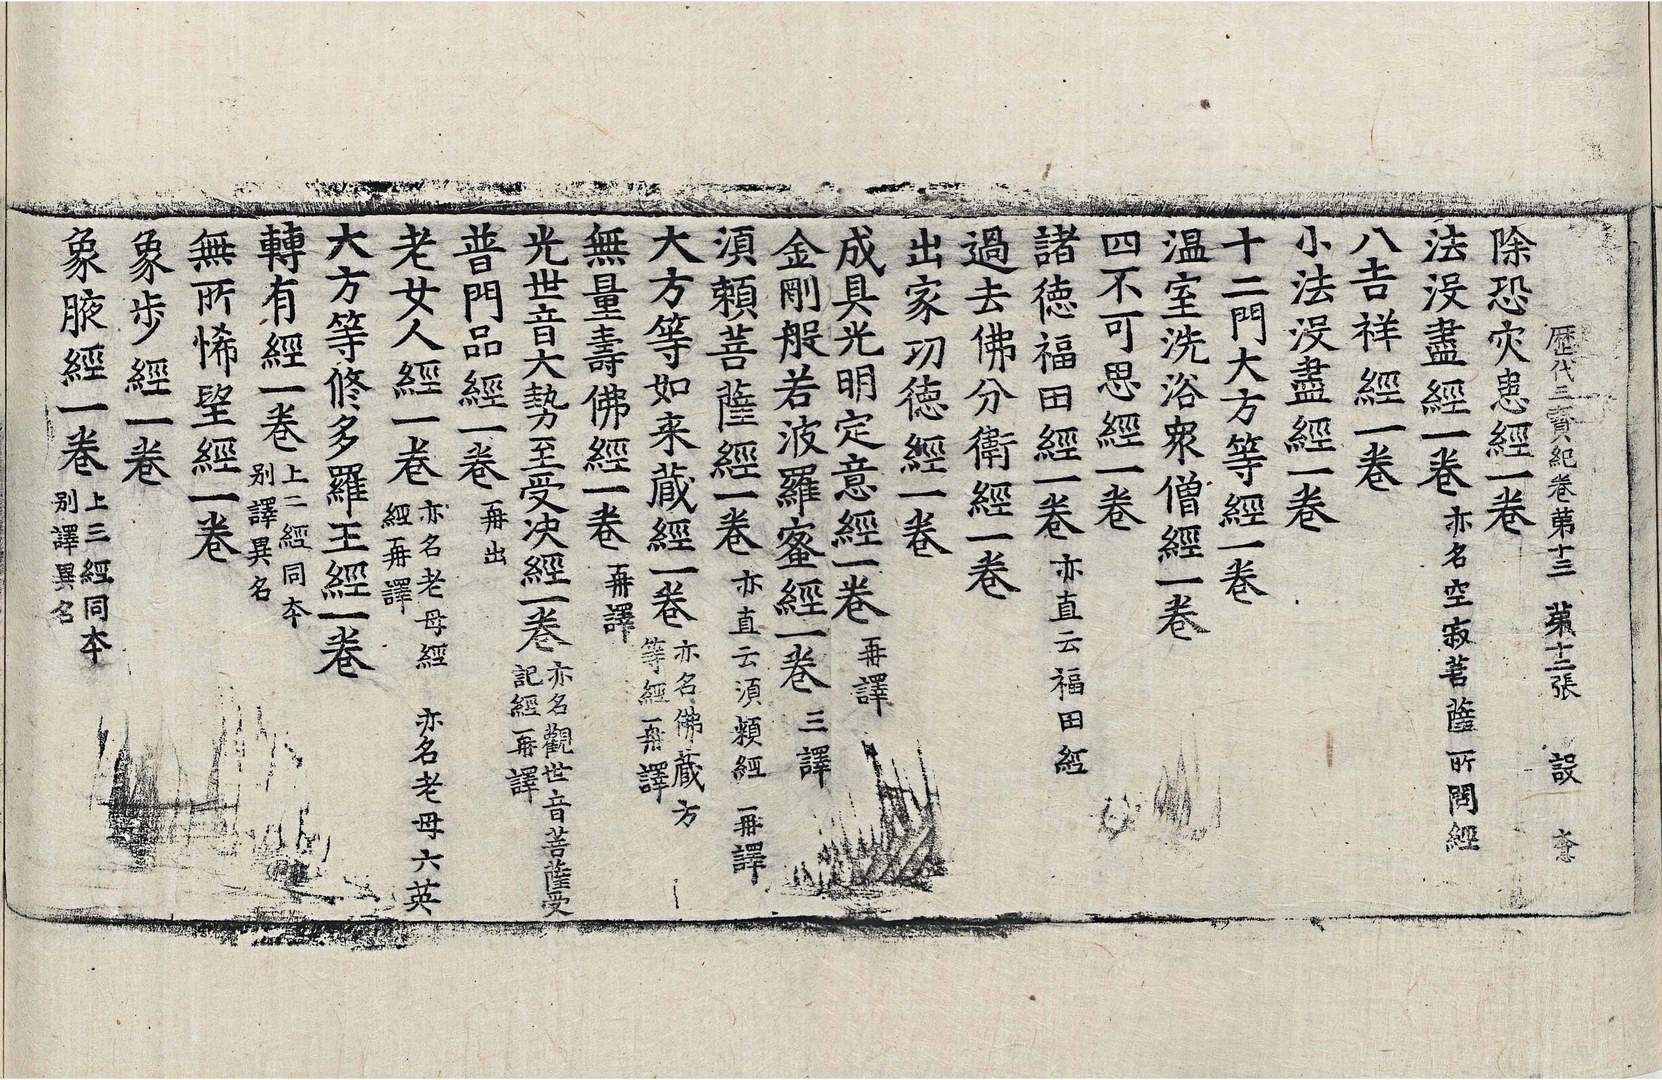 歷代三寶紀卷第十三 第十二張 設
除恐灾患經一卷
法没盡經一卷 亦名空寂菩薩所問經
八吉祥經一卷
小法没盡經一卷
十二門大方等經一卷
温室洗浴衆僧經一卷
四不可思經一卷
諸德福田經一卷 亦直云福田經
過去佛分衛經一卷
出家功德經一卷
成具光明定意經一卷 再譯
金剛般若波羅蜜經一卷 三譯
須賴菩薩經一卷 亦直云須賴經 再譯
大方等如来藏經一卷 亦名佛藏方
等經再譯
無量壽佛經一卷 再譯
光世音大勢至受决經一卷 亦名觀世音菩薩受
記經再譯
普門品經一卷 再出
老女人經一卷 亦名老母經 亦名老母六英
經再譯
大方等修多羅王經一卷
轉有經一卷 上二經同本
别譯異名
無所悕望經一卷
象步經一卷
象腋經一卷 上三經同本
别譯異名